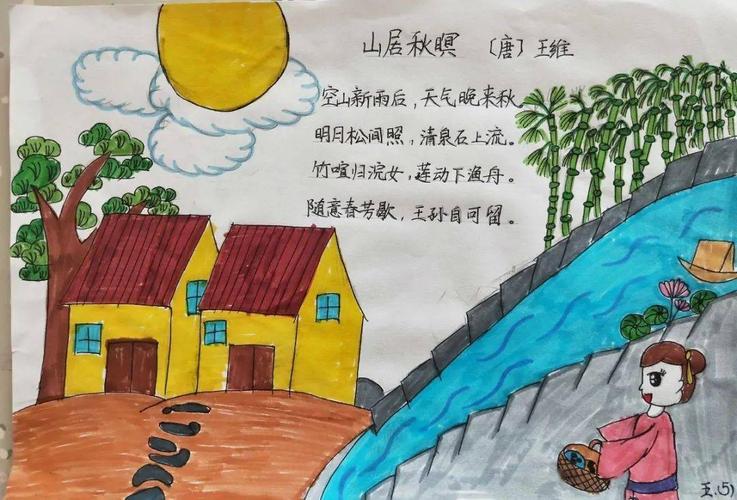 山居秋暝 〔唐〕王维
空山新雨后，天气晚来秋
明月松间照，清泉石上流。
竹喧归浣女，莲动下渔舟。
随意春芳歇，王孙自可留。
五.(5)